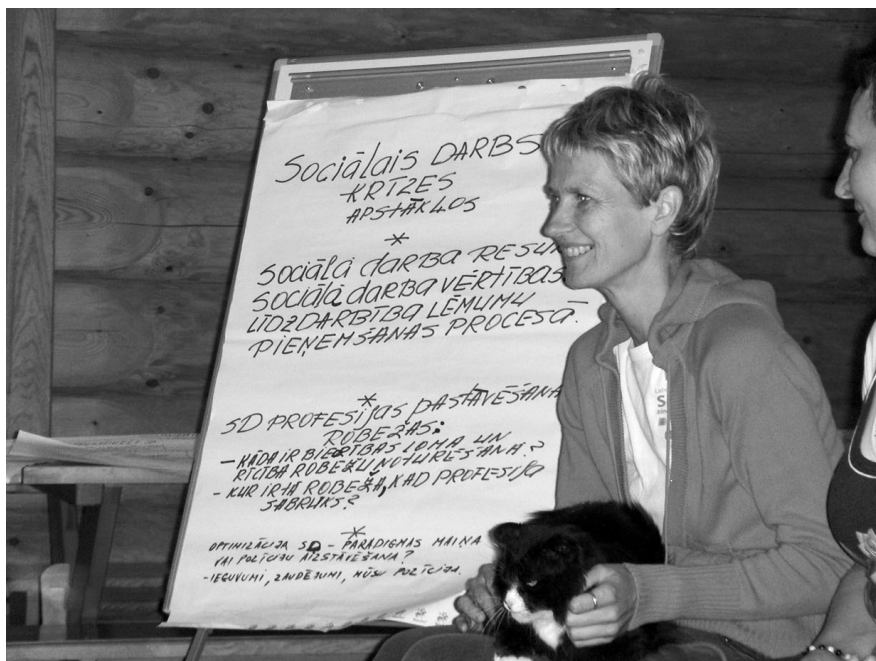 SOCIĀLAIS DARBS
KRĪZES
APSTĀKĻOS
*
SOCIĀLĀ DARBA
SOCIĀLĀ DARBA VĒRTĪBAS
LĪDZDARBĪBA LĒMUMU
PIEŅEMŠANAS PROCESĀ.
*
SD PROFESIJAS PASTĀVĒŠANA
ROBEŽAS:
- KĀDA IR BIEDRĪBAS LOMA UN
RĪCĪBA ROBEŽU NOTURĒŠANĀ?
- KUR IR TĀ ROBEŽA, KAD PROFESIJA
SABRUKS?
*
OPTIMIZĀCIJA SD - PARADIGMAS MAIŅA
VAI POZĪCIJU AIZSTĀVĒŠANA?
- IEGUVUMI, ZAUDĒJUMI, MŪSU POZĪCIJA.